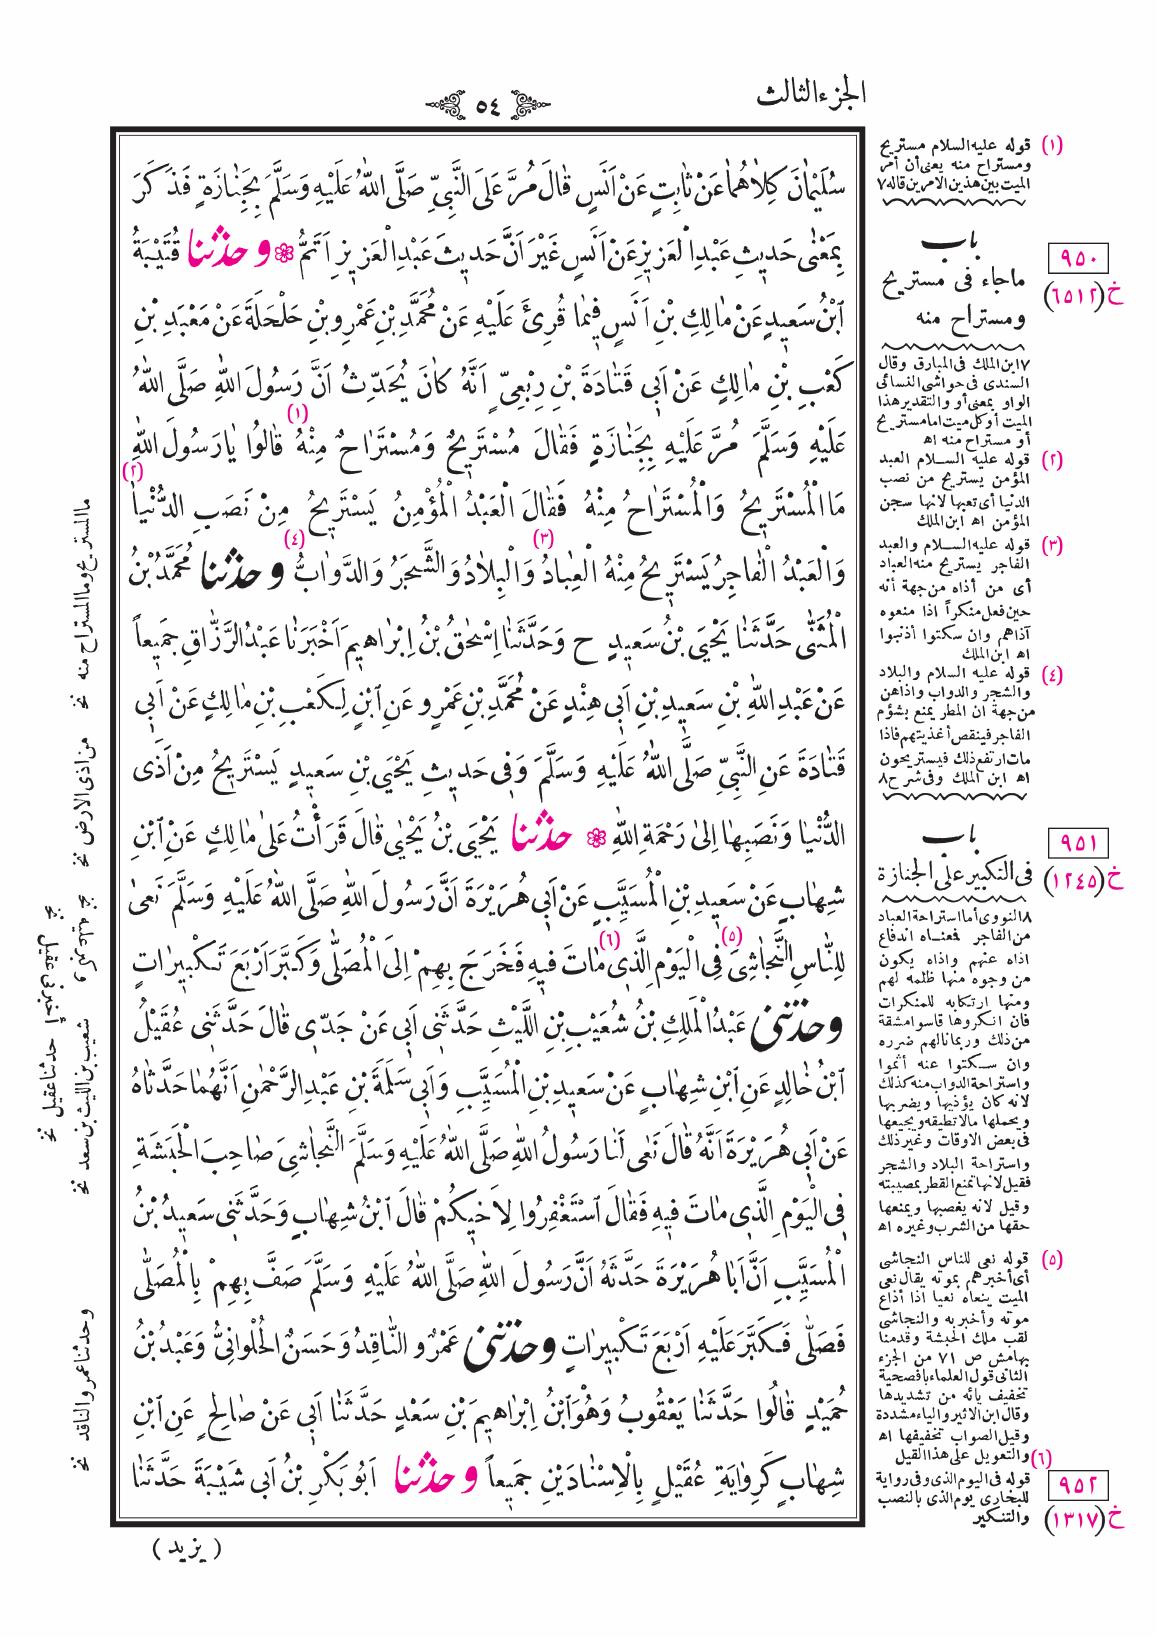 الجزء الثالث
٥٤
سُلَيْمَانَ كِلَاهُمَا عَنْ ثَابِتٍ عَنْ اَنَسٍ قَالَ مُرَّ عَلَى النَّبِيِّ صَلَّى اللّٰهُ عَلَيْهِ وَسَلَّمَ بِجَنَازَةٍ فَذَكَرَ
بِمَعْنٰى حَدِيثِ عَبْدِ الْعَزِيزِ عَنْ اَنَسٍ غَيْرَ اَنَّ حَدِيثَ عَبْدِ الْعَزِيزِ اَتَمُّ ❀ وحدثنا قُتَيْبَةُ
ابْنُ سَعِيدٍ عَنْ مَالِكِ بْنِ اَنَسٍ فِيمَا قُرِئَ عَلَيْهِ عَنْ مُحَمَّدِ بْنِ عَمْرِو بْنِ حَلْحَلَةَ عَنْ مَعْبَدِ بْنِ
كَعْبِ بْنِ مَالِكٍ عَنْ اَبِى قَتَادَةَ بْنِ رِبْعِىٍّ اَنَّهُ كَانَ يُحَدِّثُ اَنَّ رَسُولَ اللّٰهِ صَلَّى اللّٰهُ
عَلَيْهِ وَسَلَّمَ مُرَّ عَلَيْهِ بِجَنَازَةٍ فَقَالَ مُسْتَرِيحٌ وَمُسْتَرَاحٌ مِنْهُ (١) قَالُوا يَا رَسُولَ اللّٰهِ
مَا الْمُسْتَرِيحُ وَالْمُسْتَرَاحُ مِنْهُ فَقَالَ الْعَبْدُ الْمُؤْمِنُ يَسْتَرِيحُ مِنْ نَصَبِ الدُّنْيَا (٢)
وَالْعَبْدُ الْفَاجِرُ يَسْتَرِيحُ مِنْهُ الْعِبَادُ (٣) وَالْبِلَادُ وَالشَّجَرُ وَالدَّوَابُّ (٤) وحدثنا مُحَمَّدُ بْنُ
الْمُثَنَّى حَدَّثَنَا يَحْيَى بْنُ سَعِيدٍ ح وَحَدَّثَنَا اِسْحٰقُ بْنُ اِبْرَاهِيمَ اَخْبَرَنَا عَبْدُ الرَّزَّاقِ جَمِيعاً
عَنْ عَبْدِ اللّٰهِ بْنِ سَعِيدِ بْنِ اَبِى هِنْدٍ عَنْ مُحَمَّدِ بْنِ عَمْرٍو عَنِ ابْنٍ لِكَعْبِ بْنِ مَالِكٍ عَنْ اَبِى
قَتَادَةَ عَنِ النَّبِىِّ صَلَّى اللّٰهُ عَلَيْهِ وَسَلَّمَ وَفِى حَدِيثِ يَحْيَى بْنِ سَعِيدٍ يَسْتَرِيحُ مِنْ اَذَى
الدُّنْيَا وَنَصَبِهَا اِلٰى رَحْمَةِ اللّٰهِ ❀ حدثنا يَحْيَى بْنُ يَحْيٰى قَالَ قَرَأْتُ عَلٰى مَالِكٍ عَنِ ابْنِ
شِهَابٍ عَنْ سَعِيدِ بْنِ الْمُسَيَّبِ عَنْ اَبِى هُرَيْرَةَ اَنَّ رَسُولَ اللّٰهِ صَلَّى اللّٰهُ عَلَيْهِ وَسَلَّمَ نَعٰى
لِلنَّاسِ النَّجَاشِىَ (٥) فِى الْيَوْمِ الَّذِى (٦) مَاتَ فِيهِ فَخَرَجَ بِهِمْ اِلَى الْمُصَلّٰى وَكَبَّرَ اَرْبَعَ تَكْبِيرَاتٍ
وحدثنى عَبْدُ الْمَلِكِ بْنُ شُعَيْبِ بْنِ اللَّيْثِ حَدَّثَنِى اَبِى عَنْ جَدِّى قَالَ حَدَّثَنِى عُقَيْلُ
ابْنُ خَالِدٍ عَنِ ابْنِ شِهَابٍ عَنْ سَعِيدِ بْنِ الْمُسَيَّبِ وَاَبِى سَلَمَةَ بْنِ عَبْدِ الرَّحْمٰنِ اَنَّهُمَا حَدَّثَاهُ
عَنْ اَبِى هُرَيْرَةَ اَنَّهُ قَالَ نَعٰى لَنَا رَسُولُ اللّٰهِ صَلَّى اللّٰهُ عَلَيْهِ وَسَلَّمَ النَّجَاشِىَ صَاحِبَ الْحَبَشَةِ
فِى الْيَوْمِ الَّذِى مَاتَ فِيهِ فَقَالَ اسْتَغْفِرُوا لِاَخِيكُمْ قَالَ ابْنُ شِهَابٍ وَحَدَّثَنِى سَعِيدُ بْنُ
الْمُسَيَّبِ اَنَّ اَبَا هُرَيْرَةَ حَدَّثَهُ اَنَّ رَسُولَ اللّٰهِ صَلَّى اللّٰهُ عَلَيْهِ وَسَلَّمَ صَفَّ بِهِمْ بِالْمُصَلَّى
فَصَلّٰى فَكَبَّرَ عَلَيْهِ اَرْبَعَ تَكْبِيرَاتٍ وحدثنى عَمْرٌو النَّاقِدُ وَحَسَنٌ الْحُلْوَانِىُّ وَعَبْدُ بْنُ
حُمَيْدٍ قَالُوا حَدَّثَنَا يَعْقُوبُ وَهُوَ ابْنُ اِبْرَاهِيمَ بْنِ سَعْدٍ حَدَّثَنَا اَبِى عَنْ صَالِحٍ عَنِ ابْنِ
شِهَابٍ كَرِوَايَةِ عُقَيْلٍ بِالْاِسْنَادَيْنِ جَمِيعاً وحدثنا اَبُو بَكْرِ بْنُ اَبِى شَيْبَةَ حَدَّثَنَا
( يزيد )
(١) قوله عليه السلام مستريح
ومستراح منه يعنى أن أمر
الميت بين هذين الامرين قاله ٧
باب
٩٥٠
ما جاء فى مستريح
خ (٦٥١٢)
ومستراح منه
٧ ابن الملك فى المبارق وقال
السندى فى حواشى النسائى
الواو بمعنى أو والتقدير هذا
الميت أو كل ميت اما مستريح
أو مستراح منه اه
(٢) قوله عليه السـلام العبد
المؤمن يستريح من نصب
الدنيا أى تعبها لانها سجن
المؤمن اه ابن الملك
(٣) قوله عليه السـلام والعبد
الفاجر يستريح منه العباد
أى من أذاه من جهة أنه
حين فعل منكراً اذا منعوه
آذاهم وان سكتوا أذنبوا
اه ابن الملك
(٤) قوله عليه السلام والبلاد
والشجر والدواب واذاهن
من جهة ان المطر يمنع بشؤم
الفاجر فينقص أغذيتهم فاذا
مات ارتفع ذلك فيستريحون
اه ابن الملك وفى شرح ٨
باب
٩٥١
فى التكبير على الجنازة
خ (١٢٤٥)
٨ النووى أما استراحة العباد
من الفاجر فمعنـاه اندفاع
اذاه عنهم واذاه يكون
من وجوه منها ظلمه لهم
ومنها ارتكابه للمنكرات
فان انكروها قاسوا مشقة
من ذلك وربما نالهم ضرره
وان سـكتوا عنه أثموا
واستراحة الدواب منه كذلك
لانه كان يؤذيها ويضربها
ويحملها مالا تطيقه ويجيعها
فى بعض الاوقات وغير ذلك
واستراحة البلاد والشجر
فقيل لانها تمنع القطر بمصيبته
وقيل لانه يغصبها ويمنعها
حقها من الشرب وغيره اه
(٥) قوله نعى للناس النجاشى
أى أخبرهم بموته يقال نعى
الميت ينعاه نعيا اذا أذاع
موته وأخبر به والنجاشى
لقب ملك الحبشة وقدمنا
بهامش ص ٧١ من الجزء
الثانى قول العلماء بافصحية
تخفيف يائه من تشديدها
وقال ابن الاثير والياء مشددة
وقيل الصواب تخفيفها اه
والتعويل على هذا القيل
(٦) قوله فى اليوم الذى وفى رواية
٩٥٢
للبخارى يوم الذى بالنصب
والتنكير
خ (١٣١٧)
ما المستريح وما المستراح منه نخ
من اذى الارض نخ
وكبر عليه نخ
أخبرنى عقيل نخ
شعيب بن الليث بن سعد نخ
حدثنا عقيل نخ
وحدثنا عمرو الناقد نخ